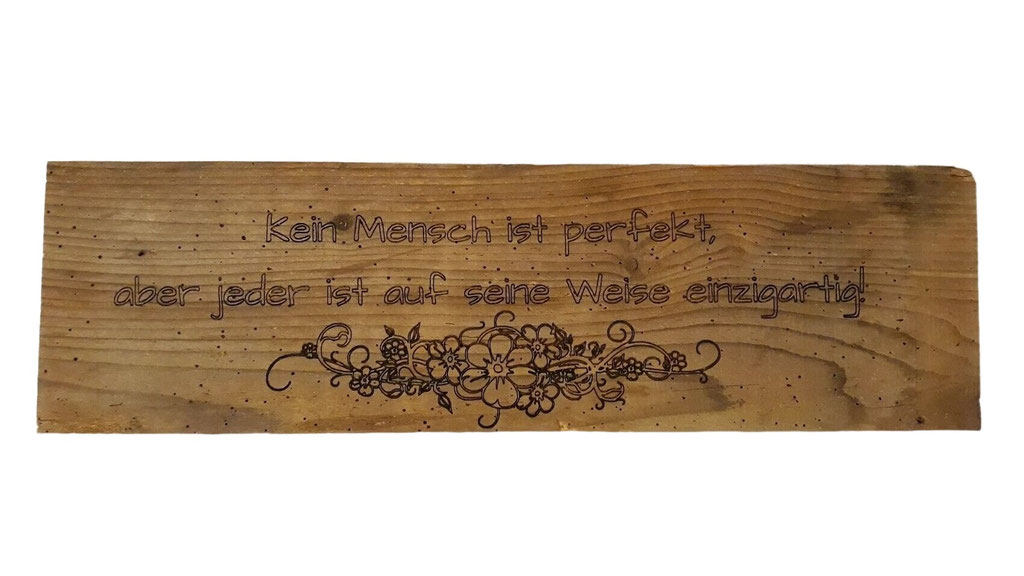 Kein Mensch ist perfekt,
aber jeder ist auf seine Weise einzigartig!